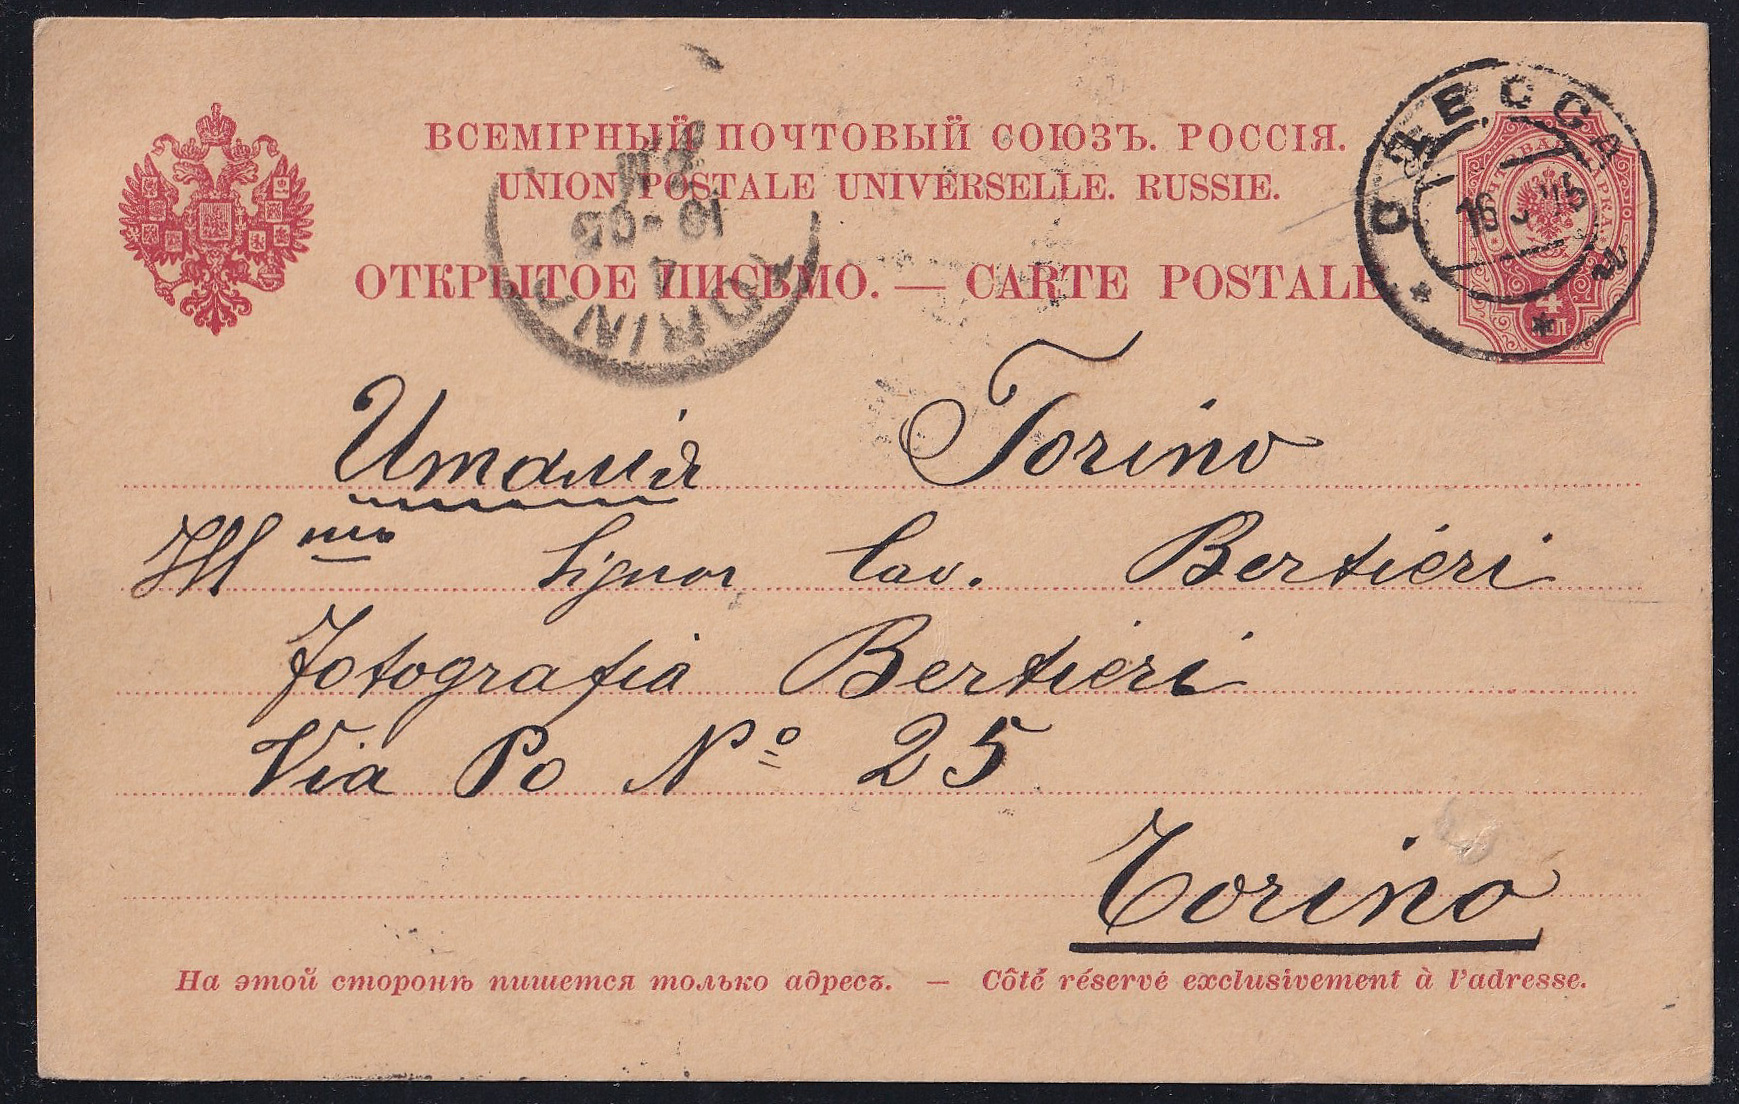 ВСЕМІРНЫЙ ПОЧТОВЫЙ СОЮЗЪ. РОССІЯ.
UNION POSTALE UNIVERSELLE. RUSSIE.
ОТКРЫТОЕ ПИСЬМО. — CARTE POSTALE
ОДЕССА
16
TORINO
10-05
Италія Torino
Ill mo Signor Cav. Bertieri
Fotografia Bertieri
Via Po Nº 25
Torino
На этой сторонѣ пишется только адресъ. — Côté réservé exclusivement à l'adresse.